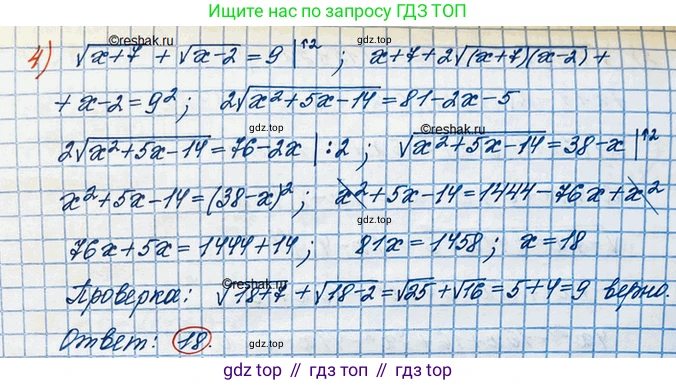 Ищите нас по запросу ГДЗ ТОП
©reshak.ru
4) √(x+7) + √(x-2) = 9 |↑2 ; x+7+2√((x+7)(x-2)) +
+ x-2=9²; 2√(x²+5x-14)=81-2x-5
gdz.top
©reshak.ru
2√(x²+5x-14)=76-2x |:2 ; √(x²+5x-14)=38-x |↑2
gdz.top
x²+5x-14=(38-x)²; x²+5x-14=1444-76x+x²
gdz.top
76x+5x=1444+14; 81x=1458; x=18
gdz.top
©reshak.ru
Проверка: √(18+7) + √(18-2)=√25+√16=5+4=9 верно.
gdz.top
Ответ: 18.
gdz.top
gdz.top // гдз.топ // gdz.top // гдз.топ